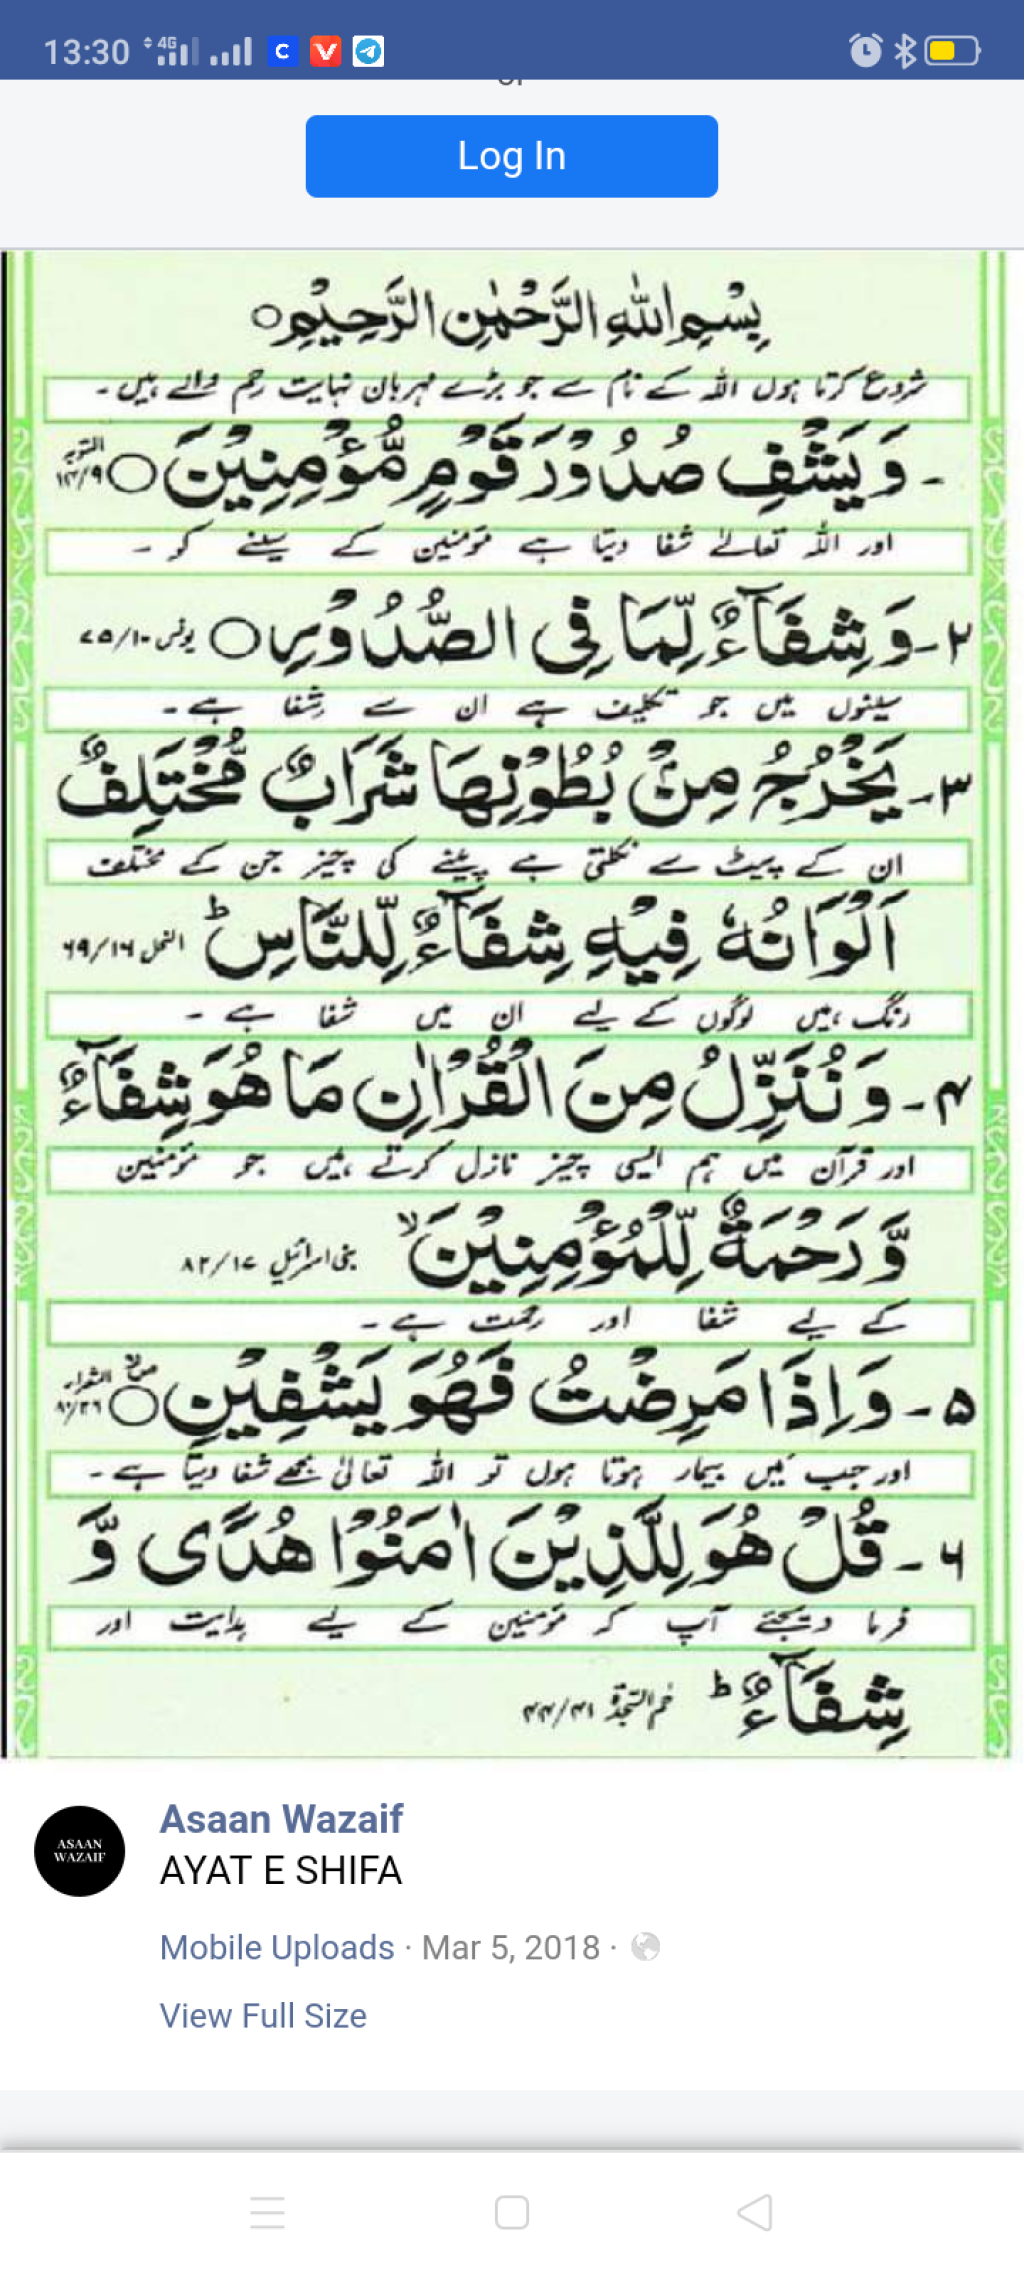 13:30 4G
or
Log In
بِسْمِ اللهِ الرَّحْمٰنِ الرَّحِيْمِ ○
شروع کرتا ہوں اللہ کے نام سے جو بڑے مہربان نہایت رحم والے ہیں ۔
۔ وَيَشْفِ صُدُوْرَ قَوْمٍ مُّؤْمِنِيْنَ ○ التوبہ ۱۴/۹
اور اللہ تعالےٰ شفا دیتا ہے مؤمنین کے سینے کو ۔
۲۔ وَشِفَآءٌ لِّمَا فِى الصُّدُوْرِ ○ یونس ۱۰/۷۵
سینوں میں جو تکلیف ہے ان سے شفا ہے ۔
۳۔ يَخْرُجُ مِنْ بُطُوْنِهَا شَرَابٌ مُّخْتَلِفٌ
ان کے پیٹ سے نکلتی ہے پینے کی چیز جن کے مختلف
اَلْوَانُهٗ فِيْهِ شِفَآءٌ لِّلنَّاسِ ؕ النحل ۶۹/۱۶
رنگ ہیں لوگوں کے لیے ان میں شفا ہے ۔
۴۔ وَنُنَزِّلُ مِنَ الْقُرْاٰنِ مَا هُوَ شِفَآءٌ
اور قرآن میں ہم ایسی چیز نازل کرتے ہیں جو مؤمنین
وَّرَحْمَةٌ لِّلْمُؤْمِنِيْنَ ۙ بنی اسرائیل ۸۲/۱۷
کے لیے شفا اور رحمت ہے ۔
۵۔ وَاِذَا مَرِضْتُ فَهُوَ يَشْفِيْنِ ○ الشعراء ۸۰/۲۶
اور جب میں بیمار ہوتا ہوں تو اللہ تعالیٰ مجھے شفا دیتا ہے ۔
۶۔ قُلْ هُوَ لِلَّذِيْنَ اٰمَنُوْا هُدًى وَّ
فرما دیجئے آپ کہ مؤمنین کے لیے ہدایت اور
شِفَآءٌ ؕ حٰم السجدۃ ۴۴/۴۱
ASAAN WAZAIF
Asaan Wazaif
AYAT E SHIFA
Mobile Uploads · Mar 5, 2018 ·
View Full Size